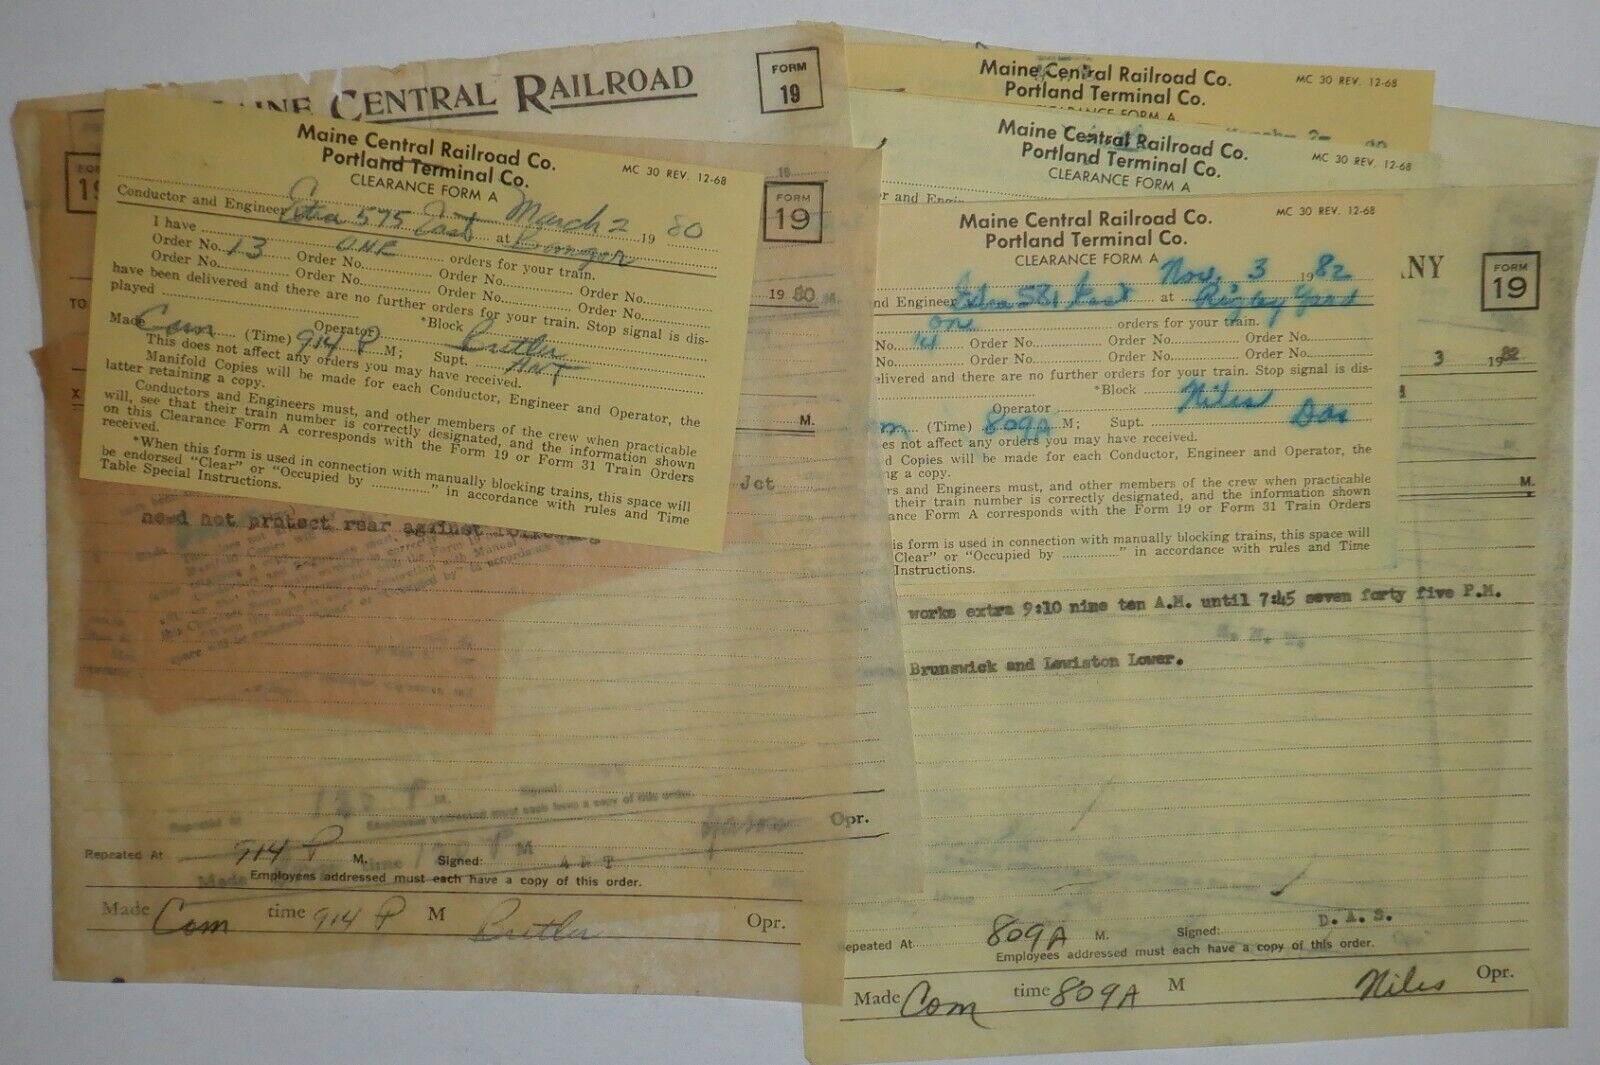 CENTRAL RAILROAD
FORM
19
Maine Central Railroad Co.
Portland Terminal Co.
CLEARANCE FORM A
MC 30 REV. 12-68
March 2 1980
Conductor and Engineer Extra 575 East at Bangor
I have ONE orders for your train.
Order No. 13 Order No. Order No. Order No.
Order No. Order No. Order No. Order No.
have been delivered and there are no further orders for your train. Stop signal is dis-
played *Block
Operator Butler
Made Com (Time) 914 P M; Supt. ART
This does not affect any orders you may have received.
Manifold Copies will be made for each Conductor, Engineer and Operator, the
latter retaining a copy.
Conductors and Engineers must, and other members of the crew when practicable
will, see that their train number is correctly designated, and the information shown
on this Clearance Form A corresponds with the Form 19 or Form 31 Train Orders
received.
*When this form is used in connection with manually blocking trains, this space will
be endorsed "Clear" or "Occupied by ............" in accordance with rules and Time
Table Special Instructions.
FORM
19
1980
TO
X
M.
Jct
need not protect rear against following
Repeated At 914 P M. Signed: A R T
Employees addressed must each have a copy of this order.
Opr.
Made Com time 914 P M Butler Opr.
Maine Central Railroad Co.
Portland Terminal Co.
MC 30 REV. 12-68
Maine Central Railroad Co.
Portland Terminal Co.
CLEARANCE FORM A
MC 30 REV. 12-68
Maine Central Railroad Co.
Portland Terminal Co.
CLEARANCE FORM A
MC 30 REV. 12-68
Nov. 3 1982
and Engineer Extra 581 East at Rigby Yard
one orders for your train.
No. 14 Order No. Order No. Order No.
No. Order No. Order No. Order No.
delivered and there are no further orders for your train. Stop signal is dis-
*Block
Operator Niles
(Time) 809A M; Supt. DAS
es not affect any orders you may have received.
d Copies will be made for each Conductor, Engineer and Operator, the
ng a copy.
rs and Engineers must, and other members of the crew when practicable
their train number is correctly designated, and the information shown
ance Form A corresponds with the Form 19 or Form 31 Train Orders
is form is used in connection with manually blocking trains, this space will
Clear" or "Occupied by ............" in accordance with rules and Time
Instructions.
ANY
FORM
19
3 1982
M.
works extra 9:10 nine ten A.M. until 7:45 seven forty five P.M.
Brunswick and Lewiston Lower.
D. A. S.
Repeated At 809A M. Signed:
Employees addressed must each have a copy of this order.
Made Com time 809A M Niles Opr.